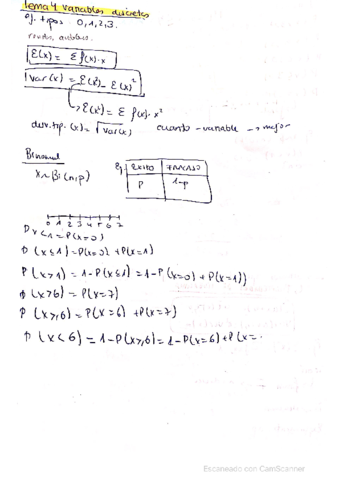 Tema 4 variables discretas
ej. tipos 0, 1, 2, 3.
E(x) = Σ f(x)·x
Var(x) = E(x²) - E(x)²
→ E(x²) = Σ f(x)·x²
desv. tip. (x) = √Var(x) cuanto - variable → mejor
Binomial
x ~ Bi(n,p)
Ej ÉXITO FRACASO
P 1-p
0 1 2 3 4 5 6 7
P x < 1 = P(x=0)
P (x ≤ 1) = P(x=0) + P(x=1)
P (x > 1) = 1 - P(x ≤ 1) = 1 - P(x=0) + P(x=1))
P (x > 6) = P(x=7)
P (x ≥ 6) = P(x=6) + P(x=7)
P (x < 6) = 1 - P(x ≥ 6) = 1 - P(x=6) + P(x=
Escaneado con CamScanner